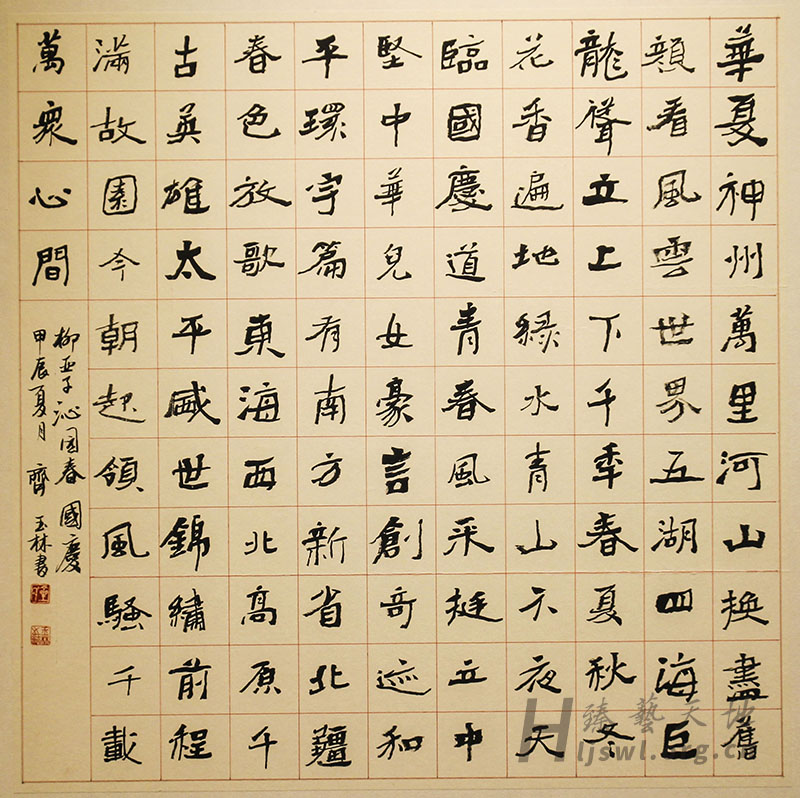 華夏神州萬里河山換盡舊
顏看風雲世界五湖四海巨
龍聳立上下千秊春夏秋冬
花香遍地綠水青山不夜天
臨國慶道青春風采挺立中
堅中華兒女豪言創奇迹和
平環宇篇有南方新省北疆
春色放歌東海西北高原千
古英雄太平盛世錦繡前程
滿故園今朝起領風騷千載
萬衆心間
柳亚子沁园春國慶
甲辰夏月齊玉林書
臻藝天地
Hljswl.org.cn